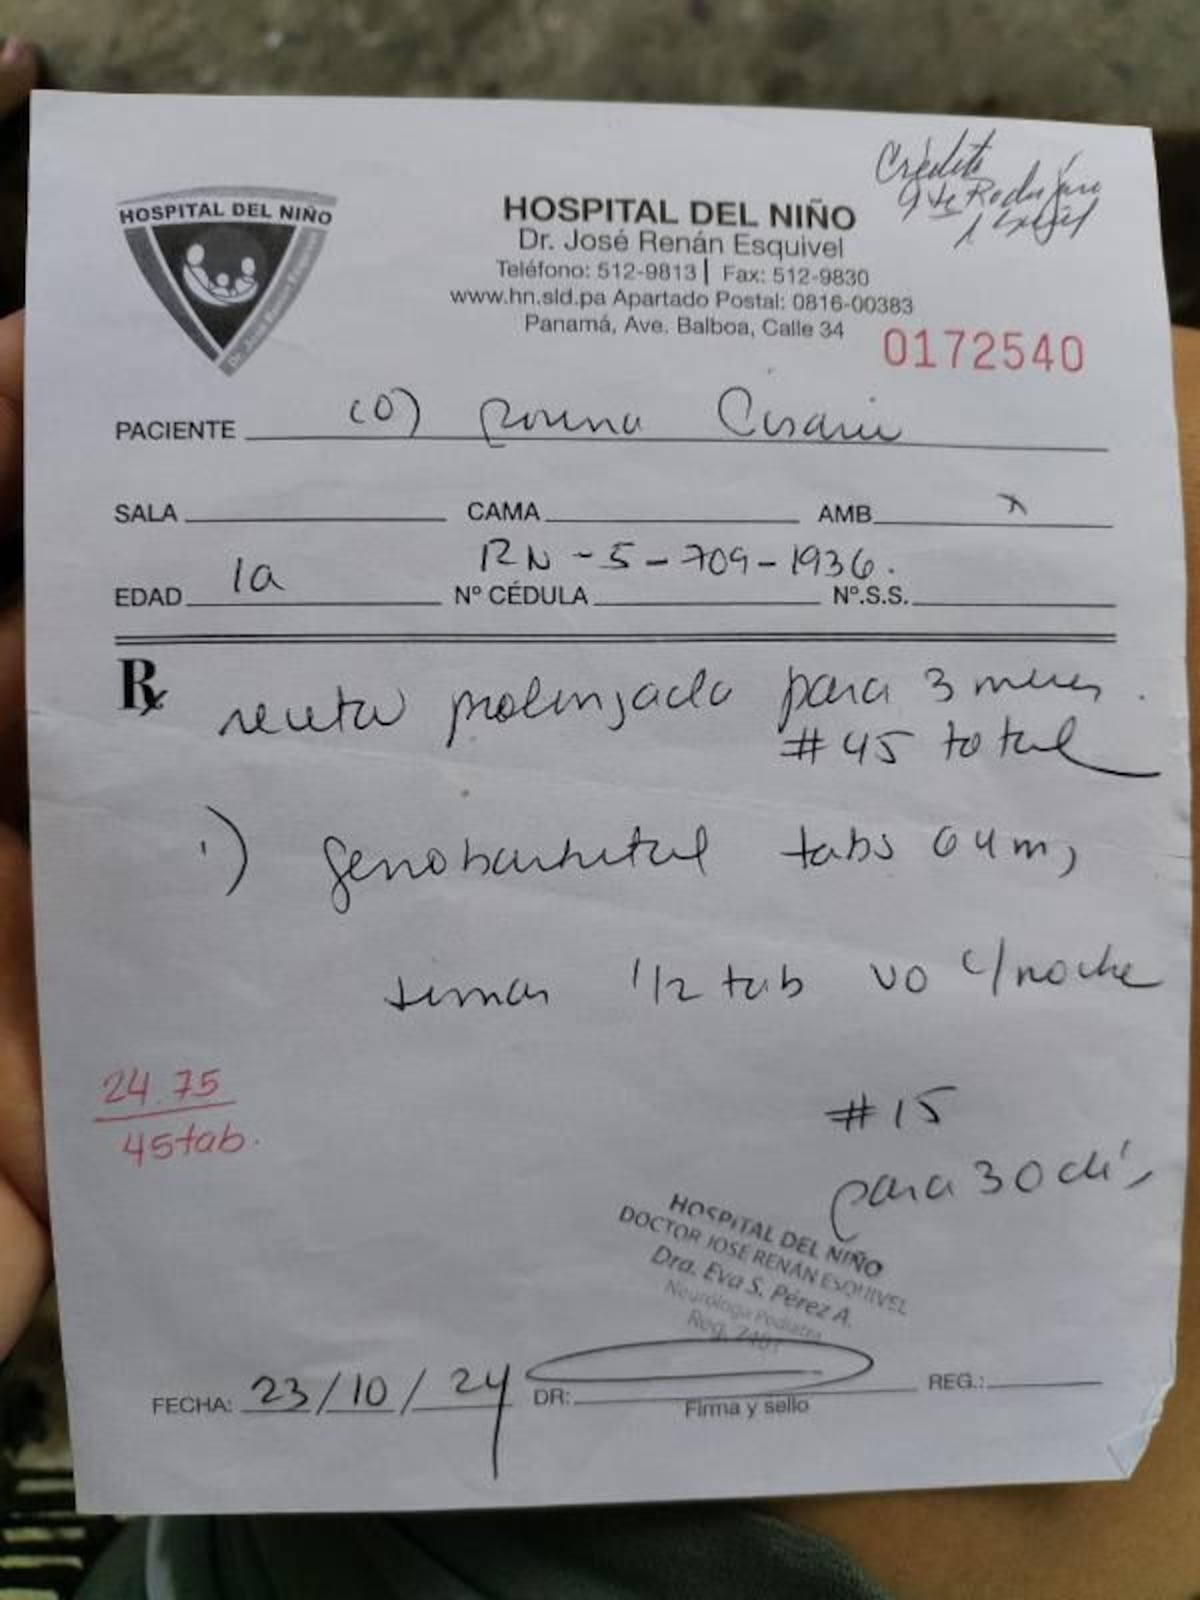 HOSPITAL DEL NIÑO
HOSPITAL DEL NIÑO
Dr. José Renán Esquivel
Teléfono: 512-9813 | Fax: 512-9830
www.hn.sld.pa Apartado Postal: 0816-00383
Panamá, Ave. Balboa, Calle 34
Crédito
0172540
PACIENTE (O)
SALA CAMA AMB. x
RN-5-709-1936.
EDAD 1a Nº CÉDULA Nº.S.S.
Rx receta prolongada para 3 meses.
#45 total
1) fenobarbital tabs 64mg
tomar 1/2 tab VO c/noche
24.75
45tab.
#15
para 30 días
HOSPITAL DEL NIÑO
DOCTOR JOSE RENÁN ESQUIVEL
Dra. Eva S. Pérez A.
Neuróloga Pediatra
Reg.
FECHA: 23/10/24 DR: REG.:
Firma y sello